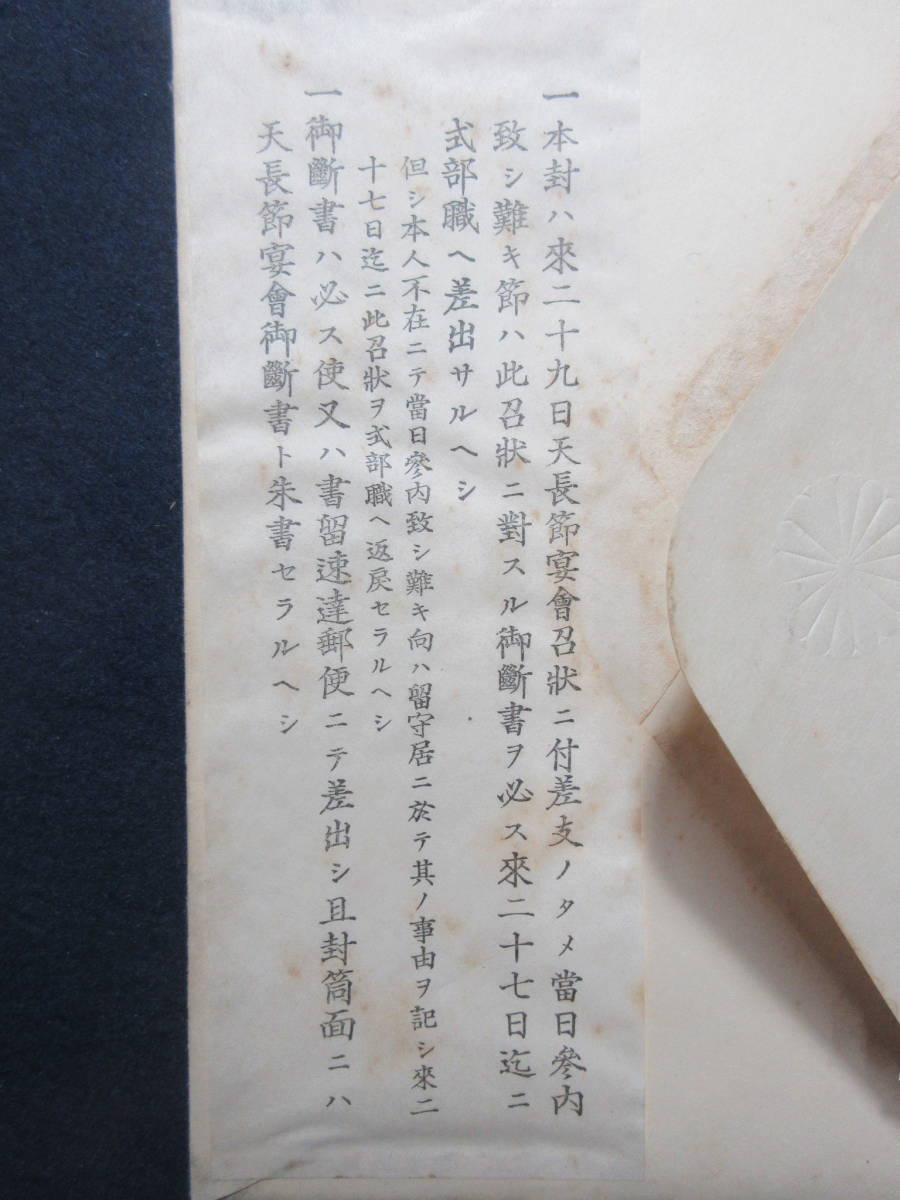 一本封ハ來二十九日天長節宴會召狀ニ付差支ノタメ當日參內
致シ難キ節ハ此召狀ニ對スル御斷書ヲ必ス來二十七日迄ニ
式部職ヘ差出サルヘシ
但シ本人不在ニテ當日參內致シ難キ向ハ留守居ニ於テ其ノ事由ヲ記シ來二
十七日迄ニ此召狀ヲ式部職ヘ返戾セラルヘシ
一御斷書ハ必ス使又ハ書留速達郵便ニテ差出シ且封筒面ニハ
天長節宴會御斷書ト朱書セラルヘシ